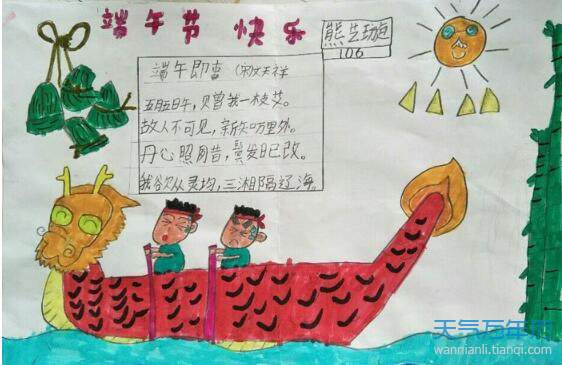 端午节 快乐
熊
106
端午即事 (宋文天祥)
五月五日午，赠我一枝艾。
故人不可见，新知万里外。
丹心照夙昔，鬓发日已改。
我欲从灵均，三湘隔辽海。
天气万年历
wannianli.tianqi.com